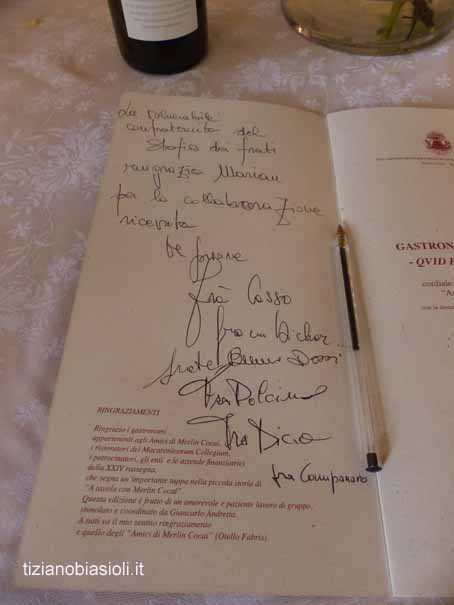 La venerabile
confraternita del
Stofiso dei frati
ringrazia Marian
per la collaborazione
ricevuta
frà Casso
Fra Dolcino
fra Campanaro
RINGRAZIAMENTI
Ringrazio i gastronomi
appartenenti agli Amici di Merlin Cocai,
i ristoratori del Macaronicorum Collegium,
i patrocinatori, gli enti e le aziende finanziatrici
della XXIV rassegna,
che segna un'importante tappa nella piccola storia di
"A tavola con Merlin Cocai".
Questa edizione è frutto di un amorevole e paziente lavoro di gruppo,
stimolato e coordinato da Giancarlo Andretta.
A tutti va il mio sentito ringraziamento
e quello degli "Amici di Merlin Cocai" (Otello Fabris).
GASTRON
- QVID
cordiale
"A
con la
tizianobiasioli.it